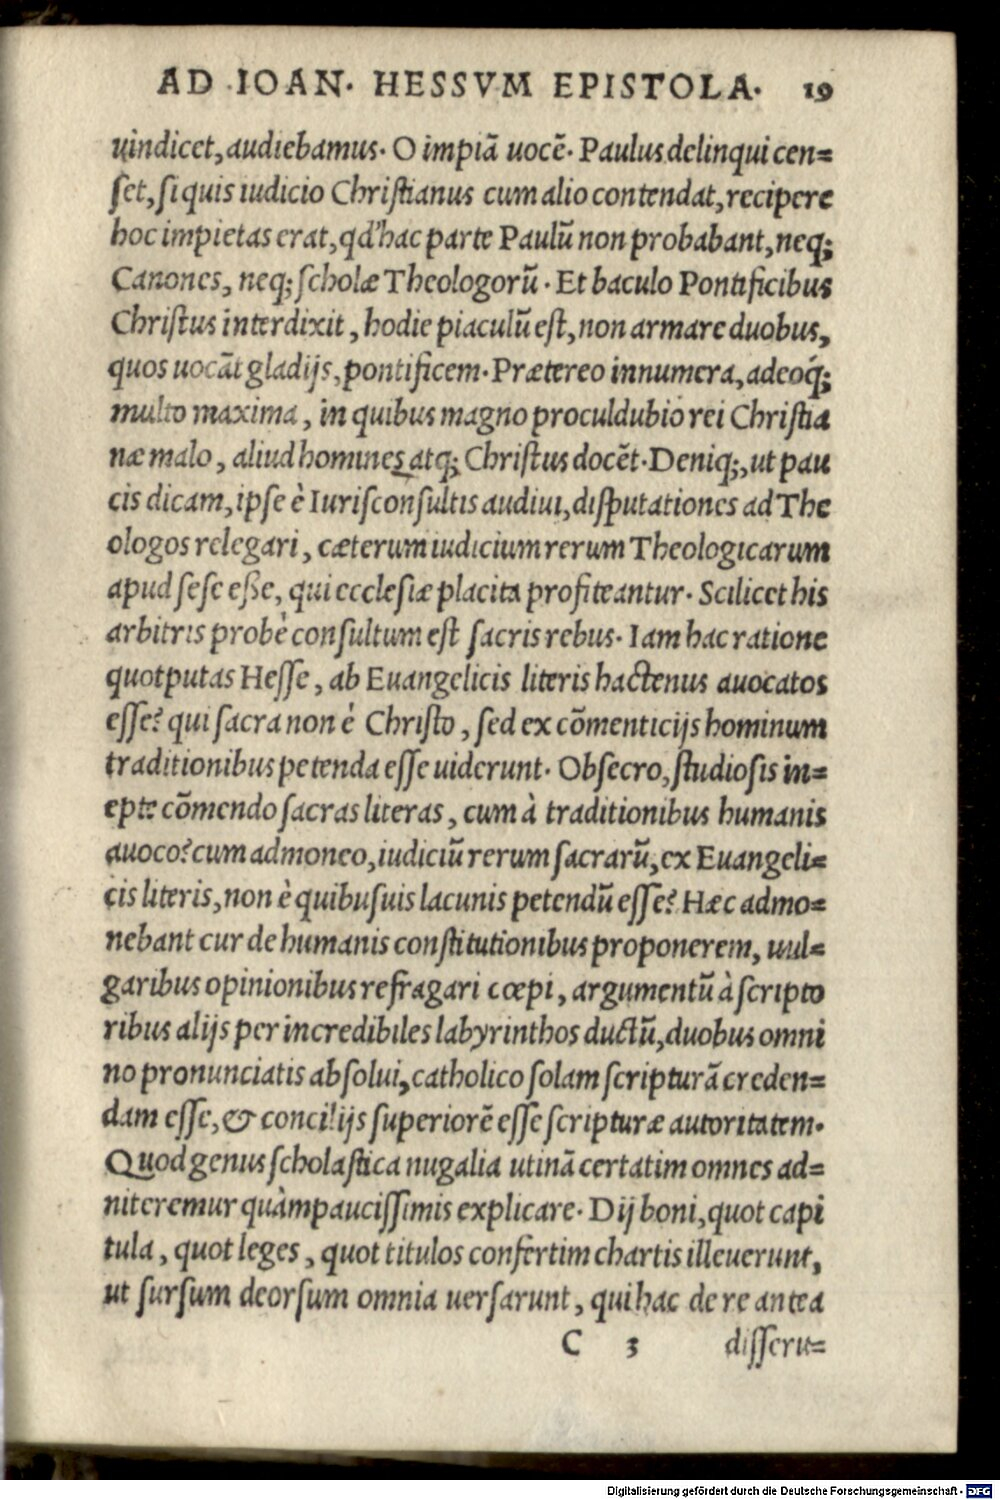 AD IOAN· HESSVM EPISTOLA· 19
uindicet, audiebamus· O impiā uocē· Paulus delinqui cen=
ſet, ſi quis iudicio Chriſtianus cum alio contendat, recipere
hoc impietas erat, qd' hac parte Paulū non probabant, neq;
Canones, neq; ſcholæ Theologorū· Et baculo Pontificibus
Chriſtus interdixit, hodie piaculū eſt, non armare duobus,
quos uocāt gladijs, pontificem· Prætereo innumera, adeoq́;
multo maxima, in quibus magno proculdubio rei Chriſtia
næ malo, aliud homines atq; Chriſtus docēt· Deniq;, ut pau
cis dicam, ipſe è Iuriſconſultis audiui, diſputationes ad The
ologos relegari, cæterum iudicium rerum Theologicarum
apud ſeſe eße, qui eccleſiæ placita profiteantur· Scilicet his
arbitris probè conſultum eſt ſacris rebus· Iam hac ratione
quot putas Heſſe, ab Euangelicis literis hactenus auocatos
eſſe? qui ſacra non è Chriſto, ſed ex cōmenticijs hominum
traditionibus petenda eſſe uiderunt· Obſecro, ſtudioſis in=
epte cōmendo ſacras literas, cum à traditionibus humanis
auoco? cum admoneo, iudiciū rerum ſacrarū, ex Euangeli=
cis literis, non è quibuſuis lacunis petendū eſſe? Hæc admo=
nebant cur de humanis conſtitutionibus proponerem, uul=
garibus opinionibus refragari cœpi, argumentū à ſcripto
ribus alijs per incredibiles labyrinthos ductū, duobus omni
no pronunciatis abſolui, catholico ſolam ſcripturā creden=
dam eſſe, & concilijs ſuperiorē eſſe ſcripturæ autoritatem·
Quod genus ſcholaſtica nugalia utinā certatim omnes ad=
niteremur quàm pauciſſimis explicare· Dij boni, quot capi
tula, quot leges, quot titulos confertim chartis illeuerunt,
ut ſurſum deorſum omnia uerſarunt, qui hac de re antea
C 3 diſſeru=
Digitalisierung gefördert durch die Deutsche Forschungsgemeinschaft · DFG